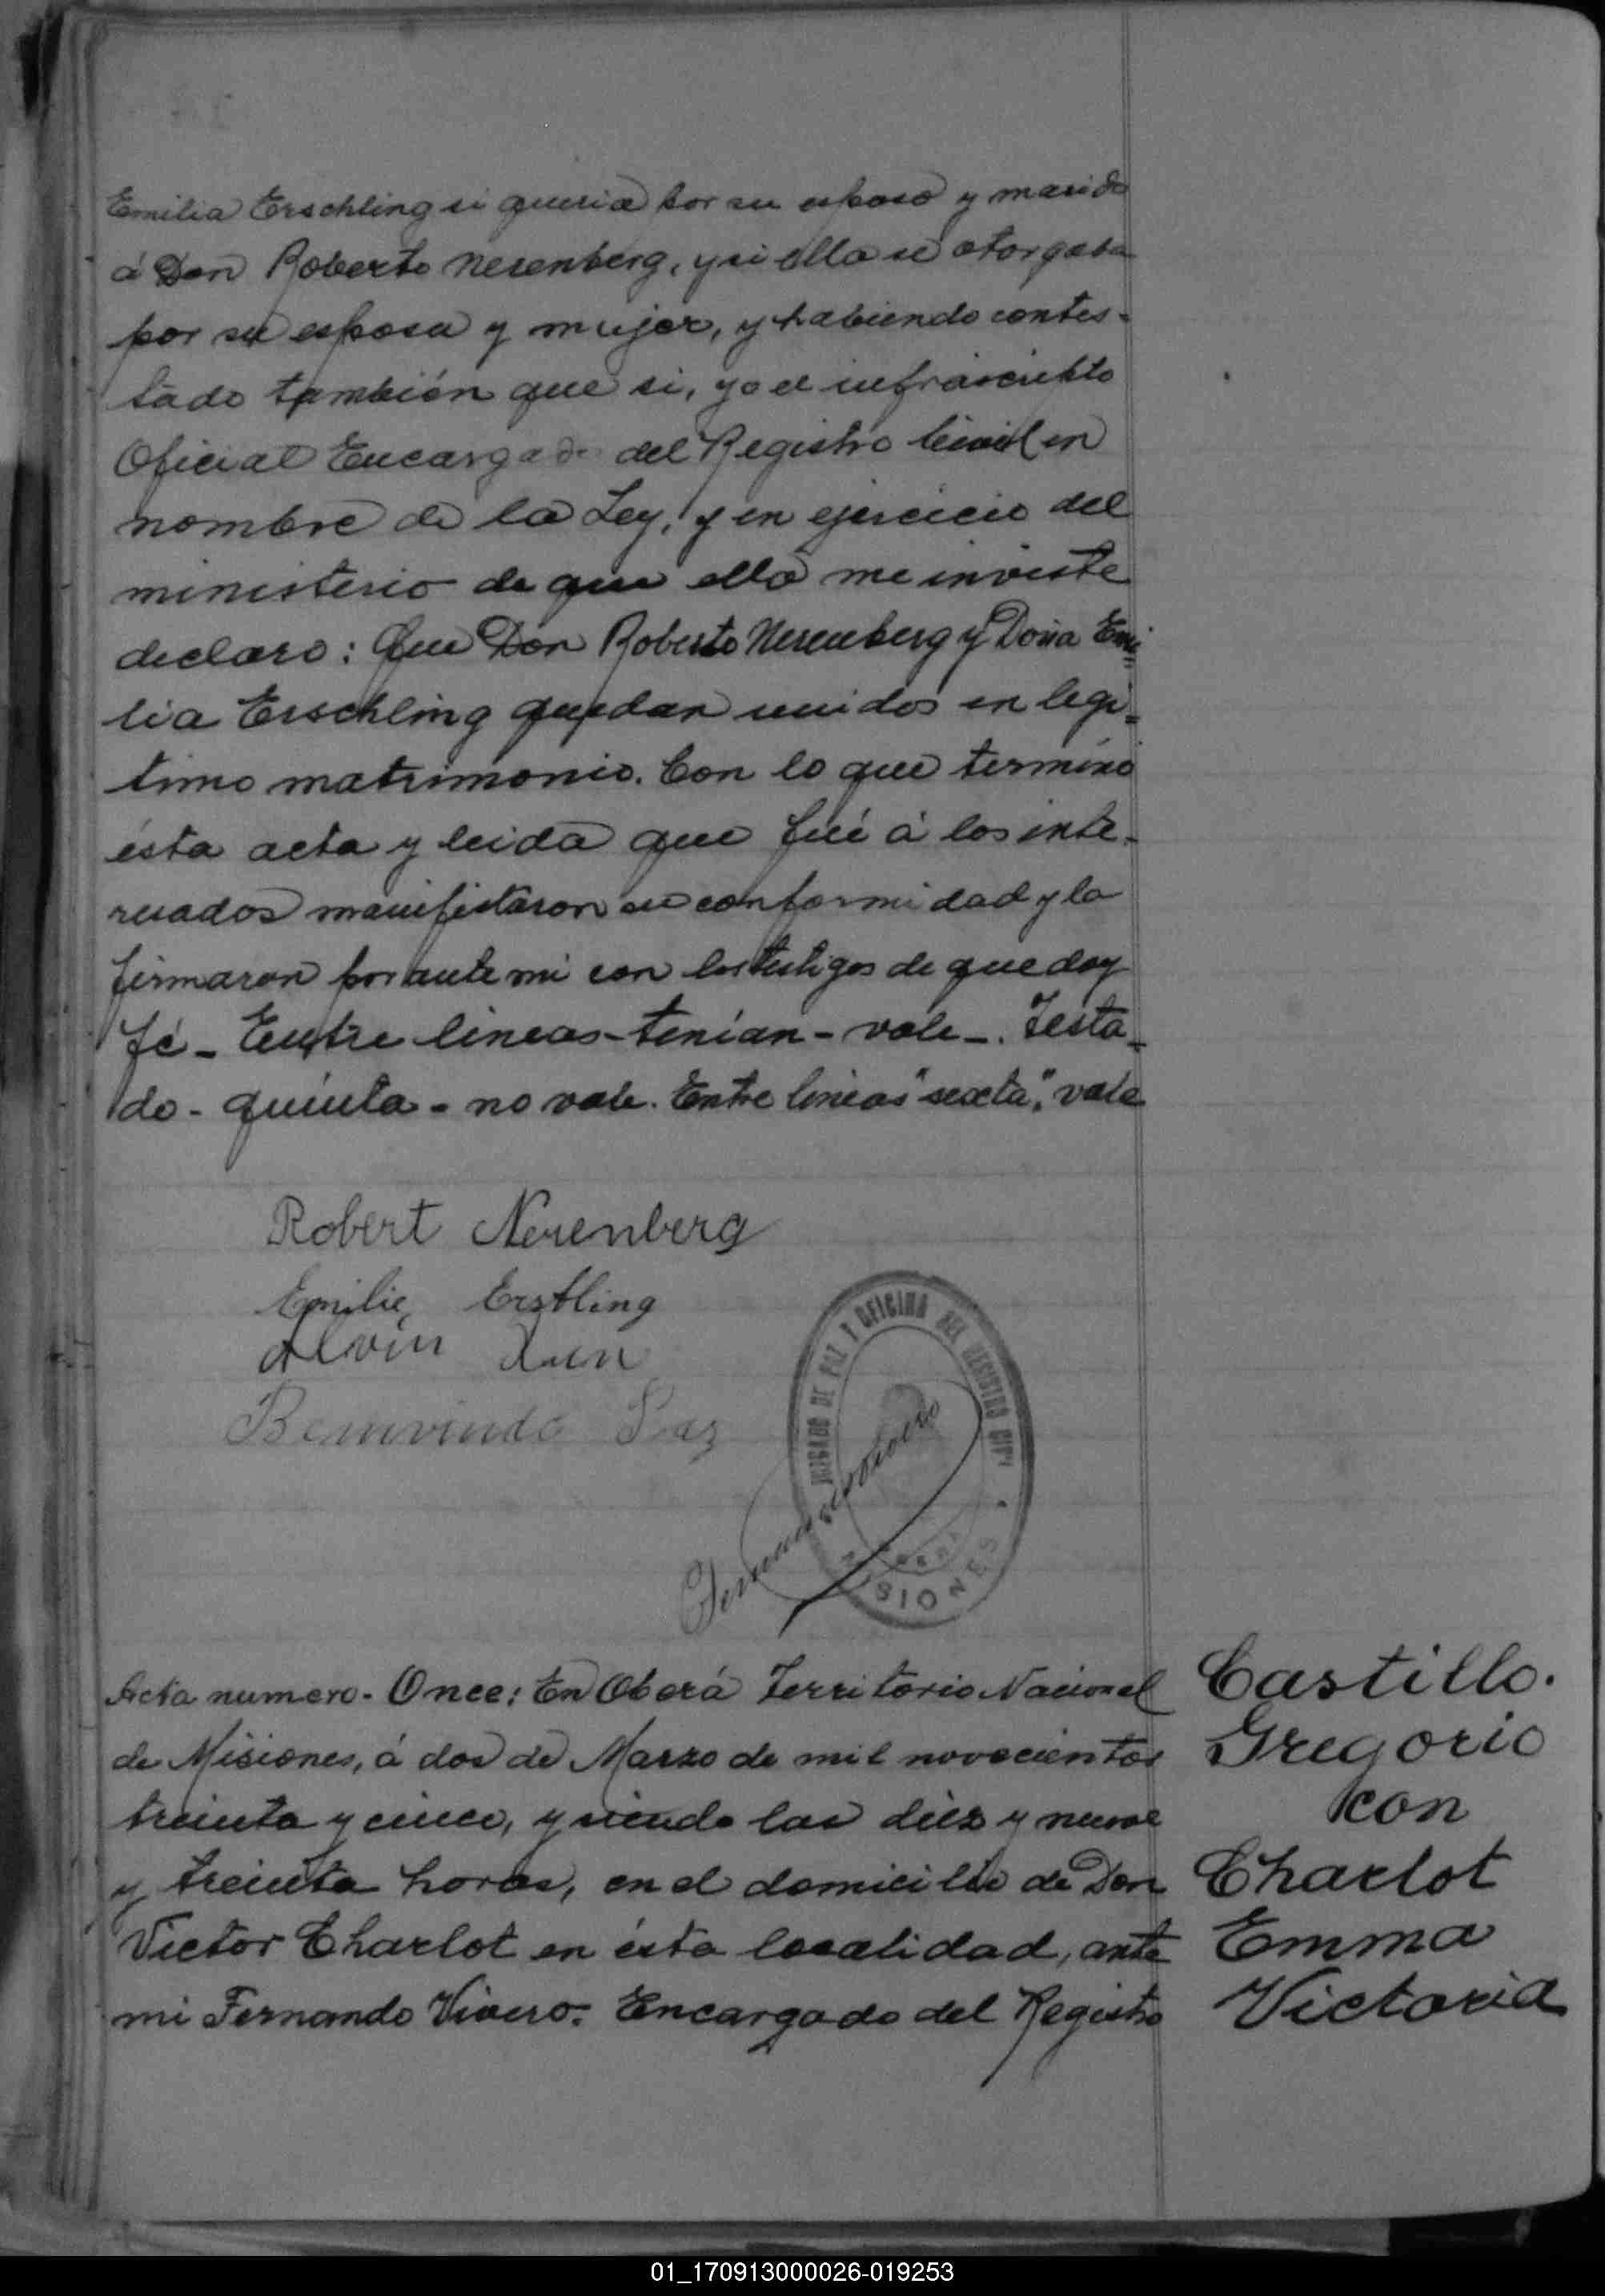 Emilia Erschling si queria por su esposo y marido
á Don Roberto Nerenberg, y si ella se otorgaba
por su esposa y mujer, y habiendo contes-
tado también que si, yo el infrascripto
Oficial Encargado del Registro Civil en
nombre de la Ley, y en ejercicio del
ministerio de que ella me inviste
declaro: Que Don Roberto Nerenberg y Doña Emi=
lia Erschling quedan unidos en legi=
timo matrimonio. Con lo que terminó
ésta acta y leida que fué á los inte-
resados manifestaron su conformidad y la
firmaron por ante mi con los testigos de que doy
fé - Entre lineas - tenían - vale -. Testa=
do - quinta - no vale. Entre lineas "sexta", vale
Robert Nerenberg
Emilie Erstling
Alvin
Bemvindo
JUZGADO DE PAZ Y OFICINA DEL REGISTRO CIVIL
MISIONES
Acta numero - Once: En Oberá Territorio Nacional
de Misiones, á dos de Marzo de mil novecientos
treinta y cinco, y siendo las diez y nueve
y treinta horas, en el domicilio de Don
Victor Charlot en ésta localidad, ante
mi Fernando Vivero - Encargado del Registro
Castillo.
Gregorio
con
Charlot
Emma
Victoria
01_170913000026-019253